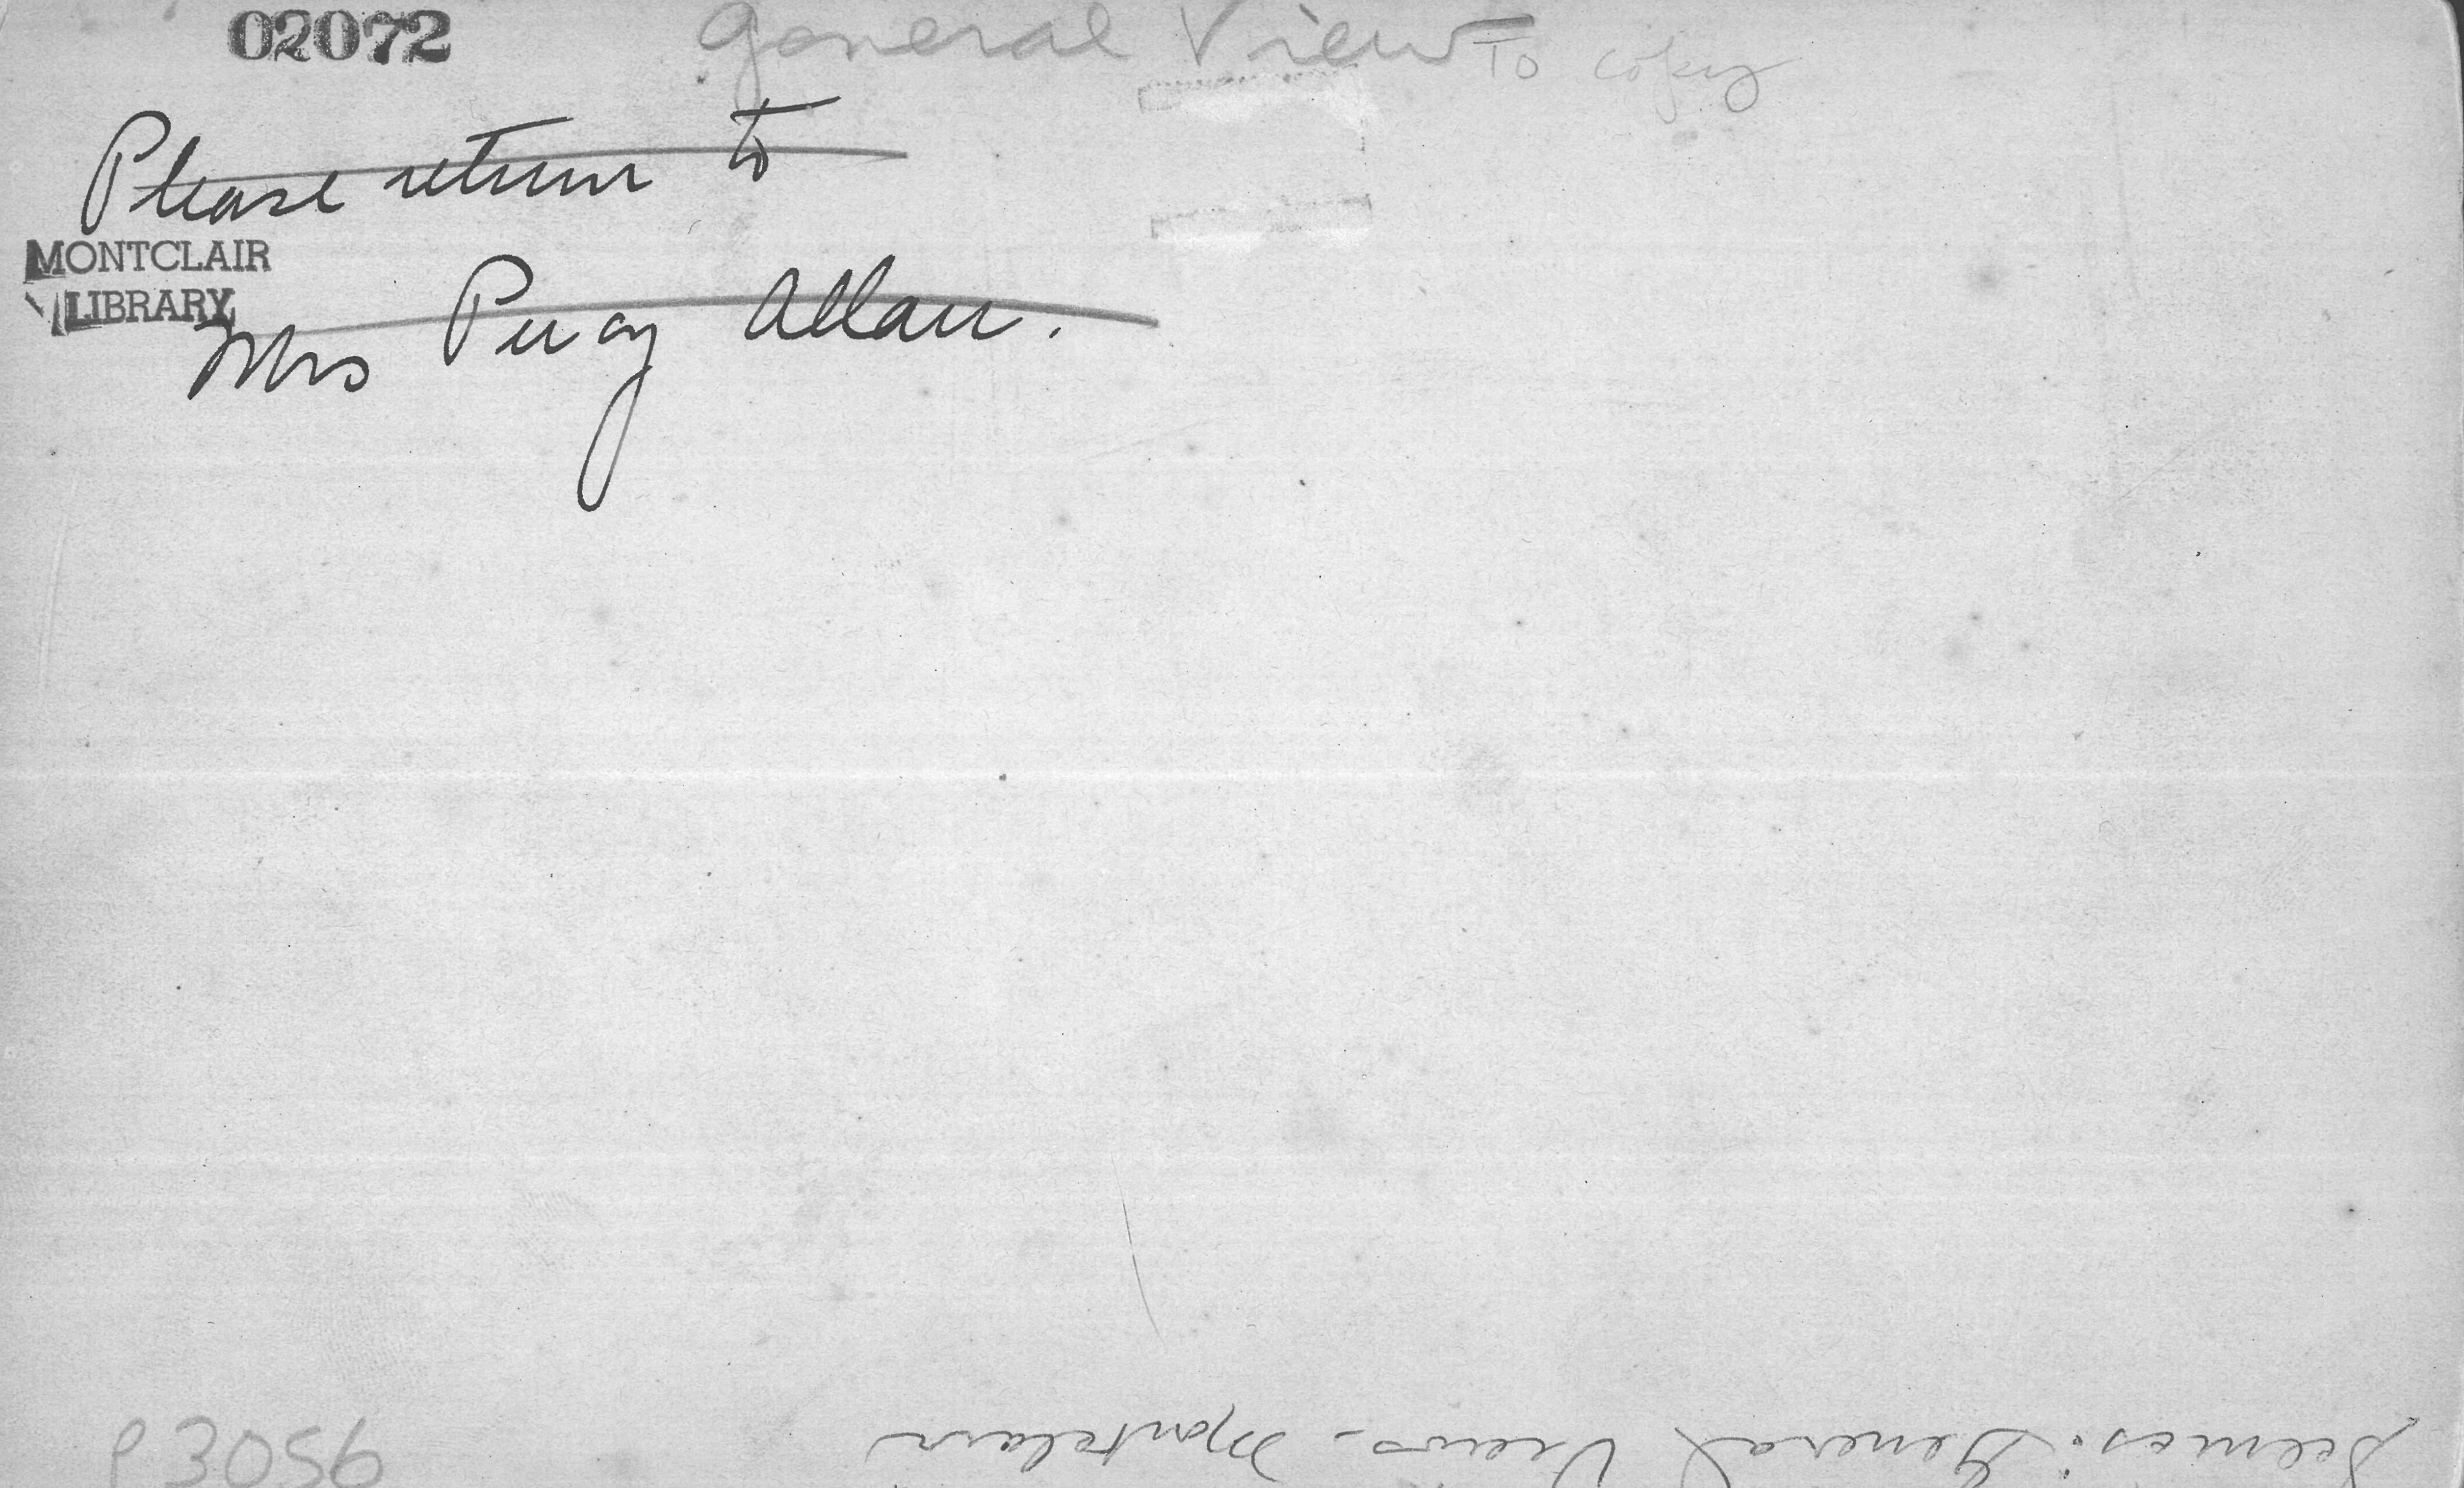 02072
General View To copy
Please return to
MONTCLAIR
LIBRARY
Mrs Percy Allan.
P3056
Scenes: General Views - Montclair